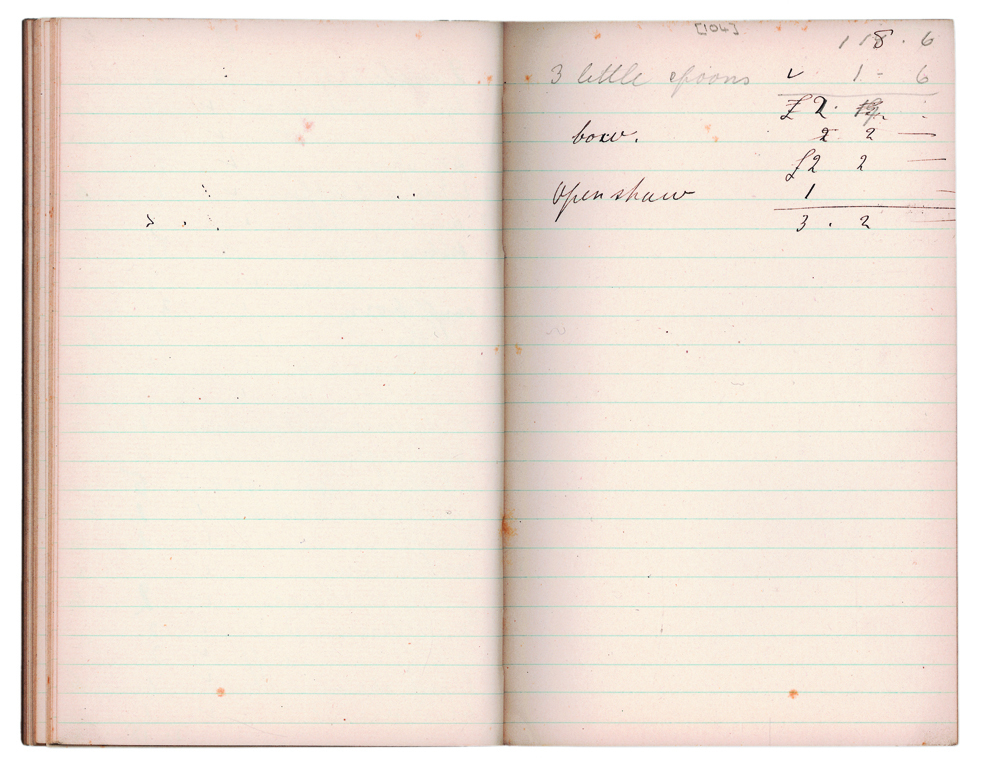 [104]
1 18 . 6
3 little spoons ✓ 1 - 6
£ 2 . .
2 2 —
£2 2 —
Openshaw 1 —
3 . 2